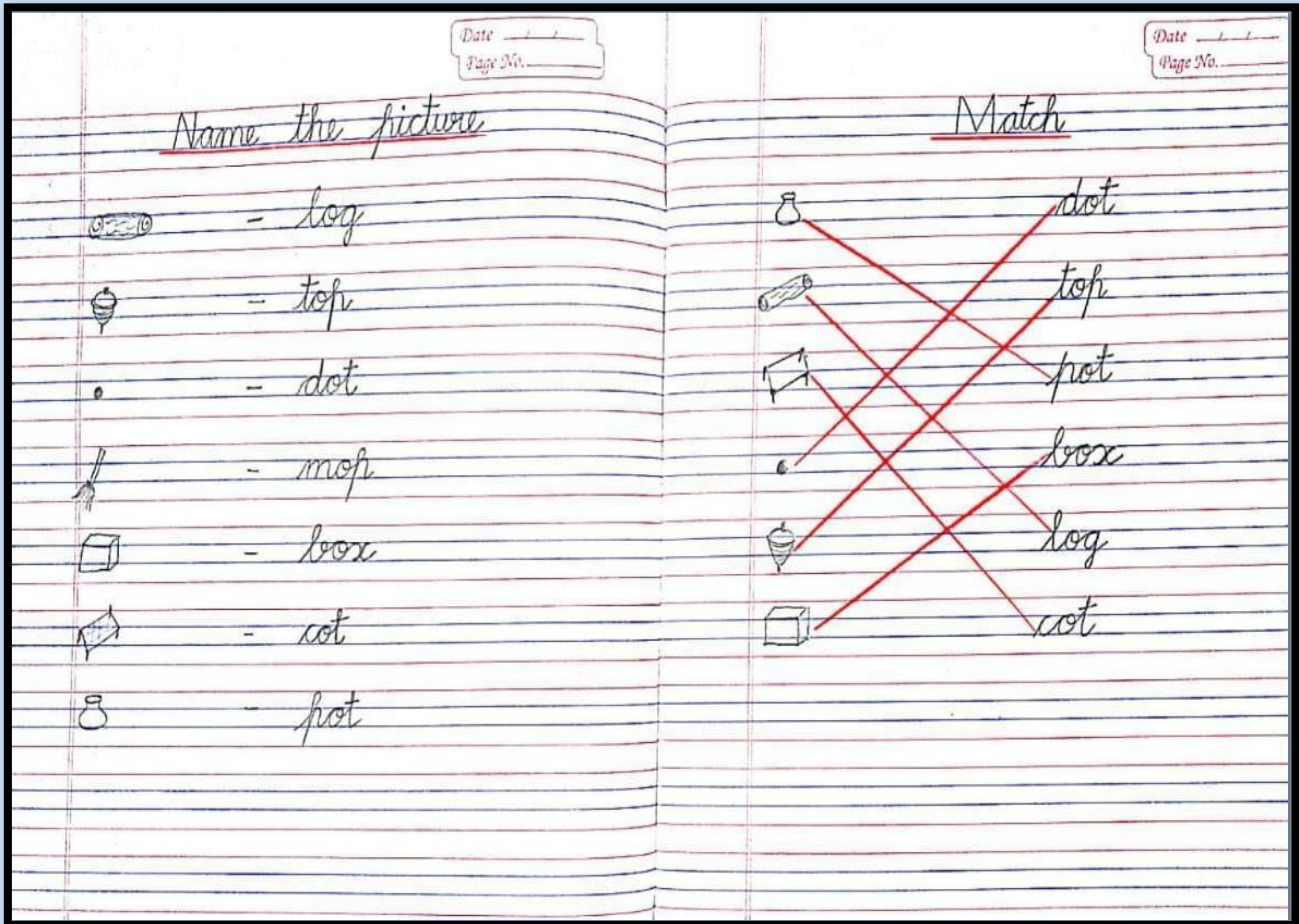 Date / /
Page No.
Name the picture
- log
- top
- dot
- mop
- box
- cot
- pot
Date / /
Page No.
Match
dot
top
pot
box
log
cot